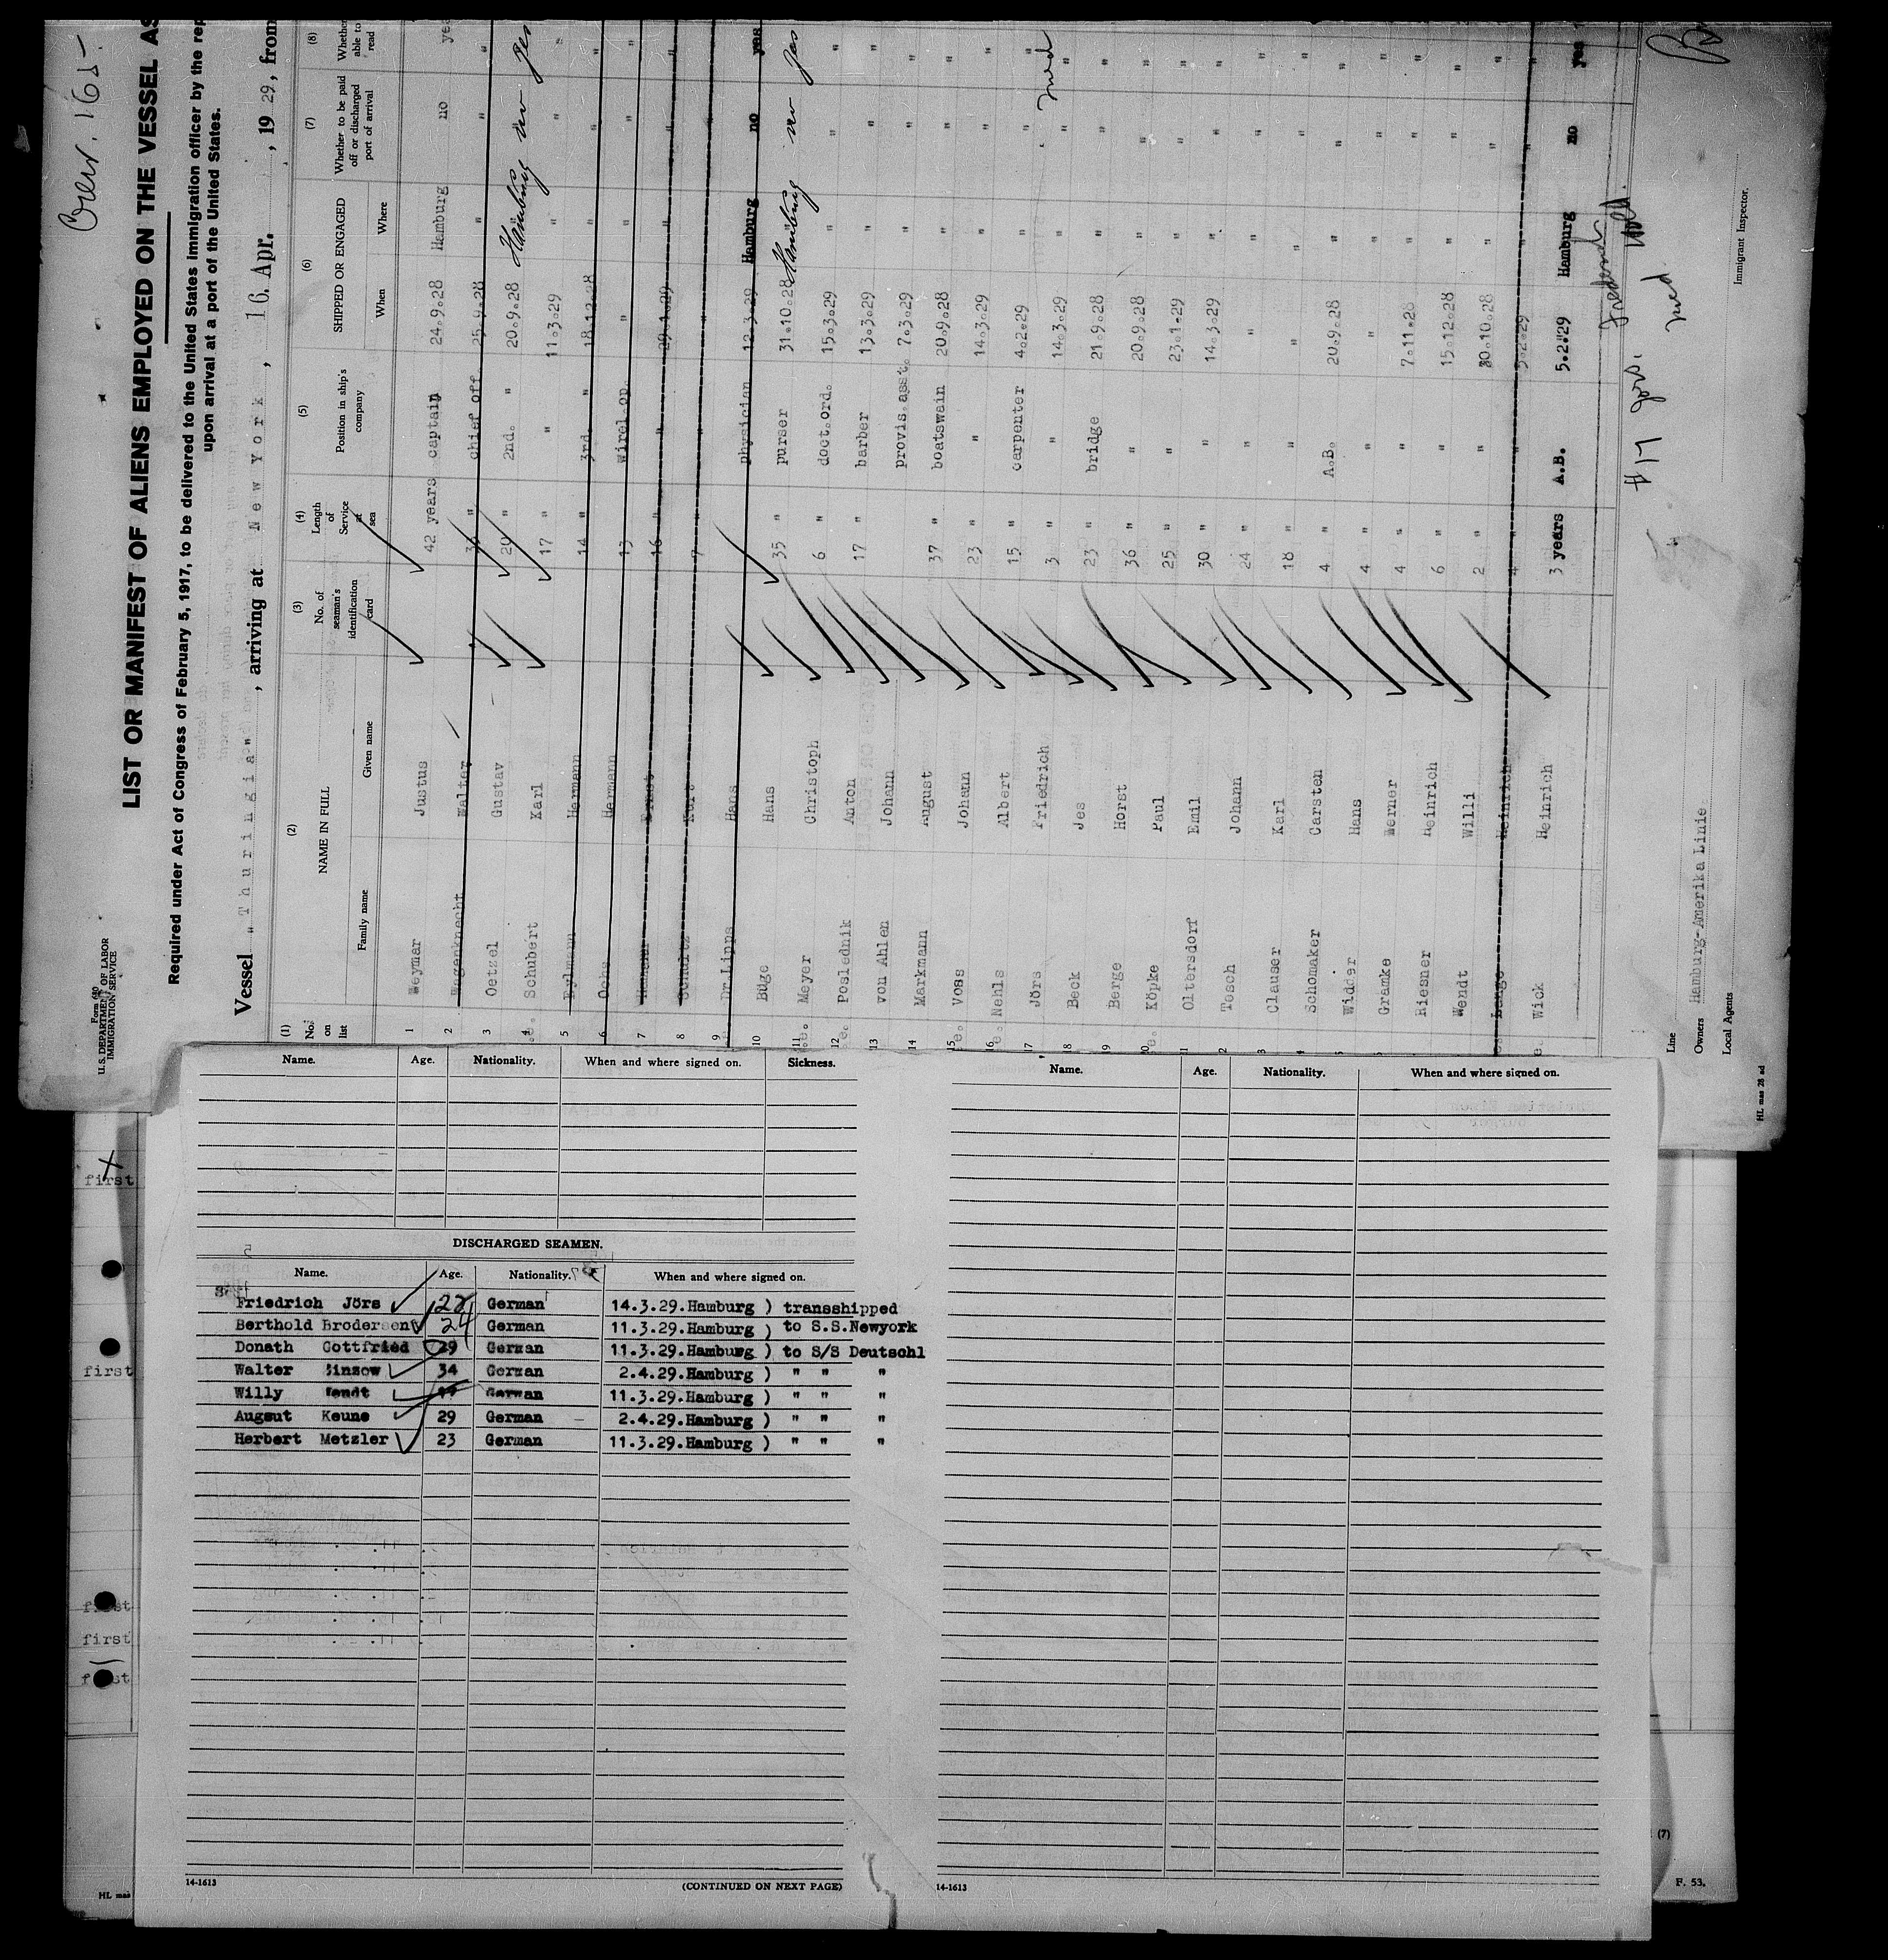 Crew. 165-
Form 680
U. S. DEPARTMENT OF LABOR
IMMIGRATION SERVICE
LIST OR MANIFEST OF ALIENS EMPLOYED ON THE VESSEL AS
Required under Act of Congress of February 5, 1917, to be delivered to the United States immigration officer by the rep
upon arrival at a port of the United States.
Vessel "Thuringia", arriving at New York, 16. Apr., 1929, from
(1) (2) (3) (4) (5) (6) (7) (8)
No. on list NAME IN FULL No. of seaman's identification card Length of Service at sea Position in ship's company SHIPPED OR ENGAGED Whether to be paid off or discharged port of arrival Whether able to read
Family name Given name When Where
1 Weymar Justus 42 years captain 24.9.28 Hamburg no yes
2 Wagenknecht Walter " chief off. 25.9.28 " "
3 Oetzel Gustav 20 " 2nd. " 20.9.28 Hamburg no yes
4 Schubert Karl 17 " " 11.3.29 " " "
5 Eylmann Hermann 14 " 3rd. " 18.12.28 " " "
6 Ochs Hermann 13 Wirel.op. " " " "
7 Ernst 16 " " 29.1.29 " " "
8 Schultz Kurt 7 " "
9 Dr. Lipps Hans physician 12.3.29 Hamburg no yes
10 Büge Hans 35 " purser 31.10.28 Hamburg no yes
11 Meyer Christoph 6 " doct.ord. 15.3.29 " " "
12 Poslednik Anton 17 " barber 13.3.29 " " "
13 von Ahlen Johann provis.asst. 7.3.29 " " "
14 Markmann August 37 " boatswain 20.9.28 " " "
15 Voss Johann 23 " " 14.3.29 " " "
16 Nehls Albert 15 " carpenter 4.2.29 " " "
17 Jörs Friedrich 3 " " 14.3.29 " " "
18 Beck Jes 23 " bridge 21.9.28 " " "
19 Berge Horst 36 " " 20.9.28 " " "
20 Köpke Paul 25 " " 23.1.29 " " "
1 Oltersdorf Emil 30 " " 14.3.29 " " "
2 Tesch Johann 24 " " " " " "
3 Clauser Karl 18 " " " " " "
4 Schomaker Carsten 4 " A.B. 20.9.28 " "
5 Widder Hans 4 " " " " " "
Gramke Werner 4 " " 7.11.28 " "
Riesner Heinrich 6 " " 15.12.28 " " "
Wendt Willi 2 " " 30.10.28 " " "
Lange Heinrich 4 " " 5.2.29 " " "
Wick Heinrich 3 years A.B. 5.2.29 Hamburg no yes
#17 Jörs. Frederich
Line
Owners Hamburg-Amerika Linie
Local Agents
Immigrant Inspector.
HL mas 28 ad
Name. Age. Nationality. When and where signed on. Sickness.
Name. Age. Nationality. When and where signed on.
DISCHARGED SEAMEN.
Name. Age. Nationality. When and where signed on.
Friedrich Jörs 22 German 14.3.29.Hamburg ) transshipped
Berthold Brodersen 24 German 11.3.29.Hamburg ) to S.S.Newyork
Donath Gottfried 29 German 11.3.29.Hamburg ) to S/S Deutschl
Walter 34 German 2.4.29.Hamburg ) " " "
Willy Wendt German 11.3.29.Hamburg ) " " "
Augsut Keune 29 German 2.4.29.Hamburg ) " " "
Herbert Metzler 23 German 11.3.29.Hamburg ) " " "
14-1613
(CONTINUED ON NEXT PAGE)
14-1613
first
first
first
first
first
HL mas
(7)
F. 53.